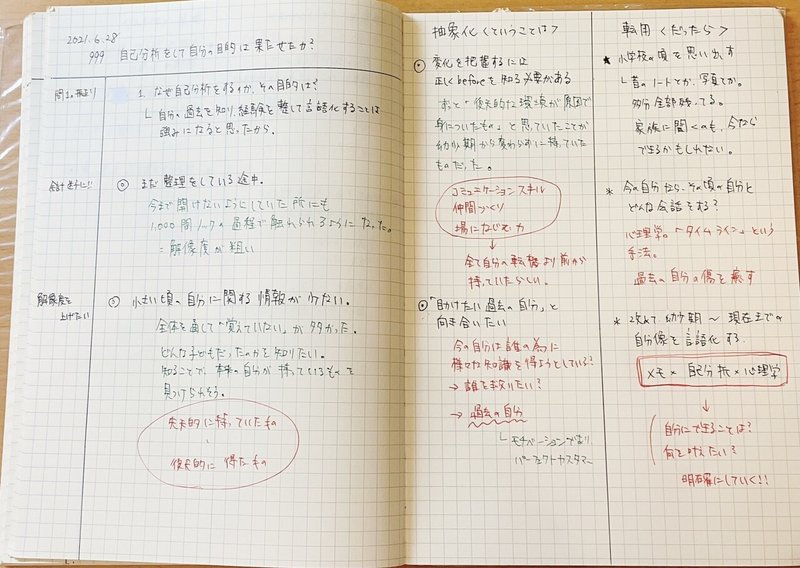 2021.6.28
999 自己分析をして自分の目的は果たせたか?
問1.振より
1. なぜ自己分析をするか、その目的は?
└ 自分の過去を知り、経験を整して言語化することは
強みになると思ったから。
◎ まだ整理をしている途中。
今まで開けないようにしていた所にも
1,000問ノックの過程で触れられるようになった。
= 解像度が粗い
解像度を
上げたい
小さい頃の自分に関する情報が少ない。
全体を通して「覚えていない」が多かった。
どんな子どもだったのかを知りたい。
知ることで、本来の自分が持っているものを
見つけられそう。
先天的に持っていたもの
後天的に得たもの
抽象化〈ということは?
◎ 変化を把握するには
正しくbeforeを知る必要がある
ずっと「後天的な環境が原因で
身についたもの」と思っていたことが
幼少期から変わらずに持っていた
ものだった。
コミュニケーションスキル
仲間づくり
場になじむ力
↓
全て自分の転機より前から
持っていたらしい。
◎「助けたい過去の自分」と
向き合いたい
今の自分は誰の為に
様々な知識を得ようとしている?
→ 誰を救りたい?
→ 過去の自分
└ モチベーションであり、
パーフェクトカスタマー
転用〈だったら?
★ 小学校の頃を思い出す
└ 昔のノートとか、写真とか。
多分全部残ってる。
家族に聞くのも、今なら
できるかもしれない。
* 今の自分なら、その頃の自分と
どんな会話をする?
心理学。「タイムライン」という
手法。
過去の自分の傷を癒す
* 改めて幼少期~現在までの
自分像を言語化する.
メモ × 自己分析 × 心理学
↓
自分にできることは?
何を叶えたい?
明確にしていく!!